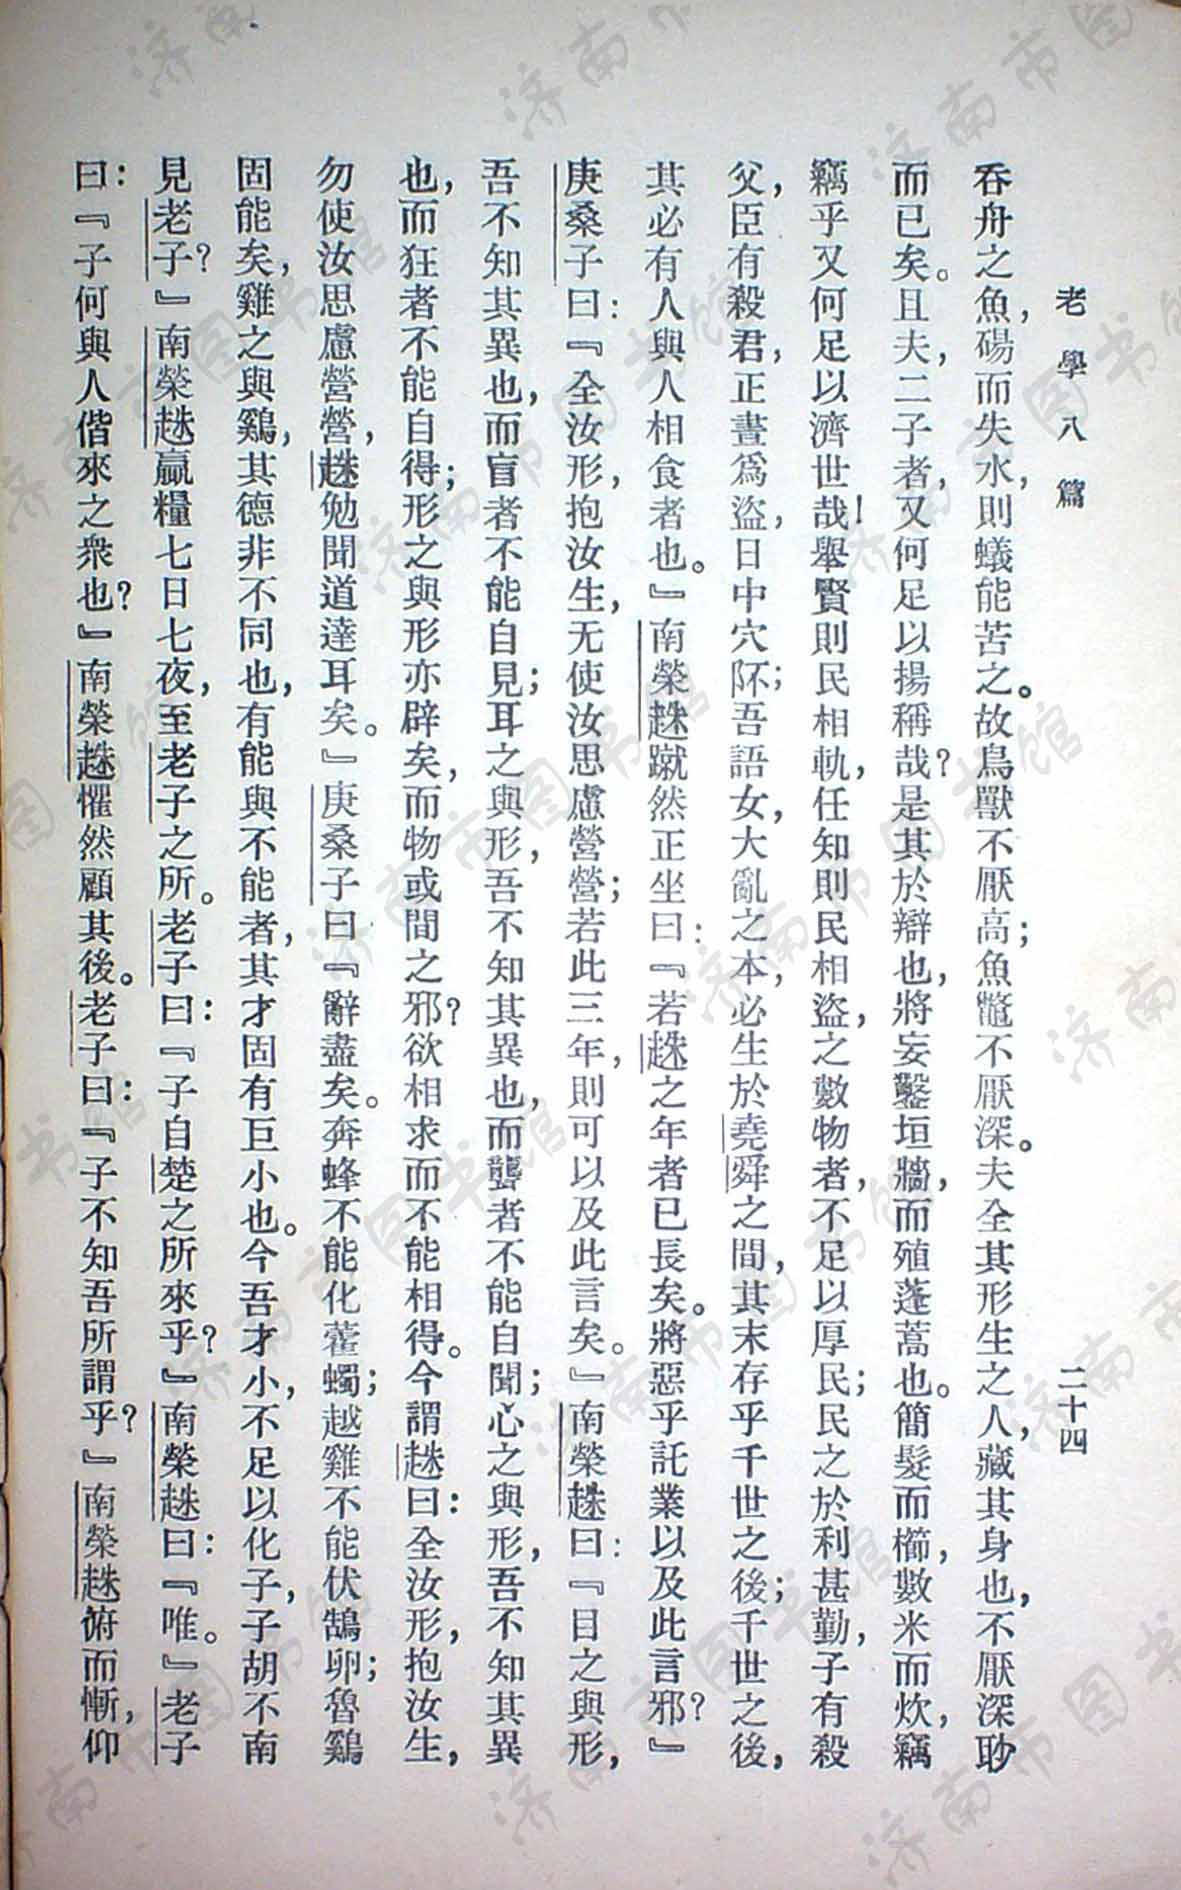 老學八篇 二十四
吞舟之魚，碭而失水，則蟻能苦之。故鳥獸不厭高；魚鼈不厭深。夫全其形生之人，藏其身也，不厭深眇
而已矣。且夫，二子者，又何足以揚稱哉？是其於辯也，將妄鑿垣牆，而殖蓬蒿也。簡髮而櫛，數米而炊，竊
竊乎又何足以濟世哉！舉賢則民相軌，任知則民相盜，之數物者，不足以厚民；民之於利甚勤，子有殺
父，臣有殺君，正晝爲盜，日中穴阫；吾語女，大亂之本，必生於堯舜之間，其末存乎千世之後；千世之後，
其必有人與人相食者也。』南榮趎蹴然正坐曰：『若趎之年者已長矣。將惡乎託業以及此言邪？』
庚桑子曰：『全汝形，抱汝生，无使汝思慮營營；若此三年，則可以及此言矣。』南榮趎曰：『目之與形，
吾不知其異也，而盲者不能自見；耳之與形，吾不知其異也，而聾者不能自聞；心之與形，吾不知其異
也，而狂者不能自得；形之與形亦辟矣，而物或間之邪？欲相求而不能相得。今謂趎曰：全汝形，抱汝生，
勿使汝思慮營營，趎勉聞道達耳矣。』庚桑子曰『辭盡矣。奔蜂不能化藿蠋；越雞不能伏鵠卵；魯鷄
固能矣，雞之與鷄，其德非不同也，有能與不能者，其才固有巨小也。今吾才小，不足以化子，子胡不南
見老子？』南榮趎贏糧七日七夜，至老子之所。老子曰：『子自楚之所來乎？』南榮趎曰：『唯。』老子
曰：『子何與人偕來之衆也？』南榮趎懼然顧其後。老子曰：『子不知吾所謂乎？』南榮趎俯而慚，仰
济南市图书馆